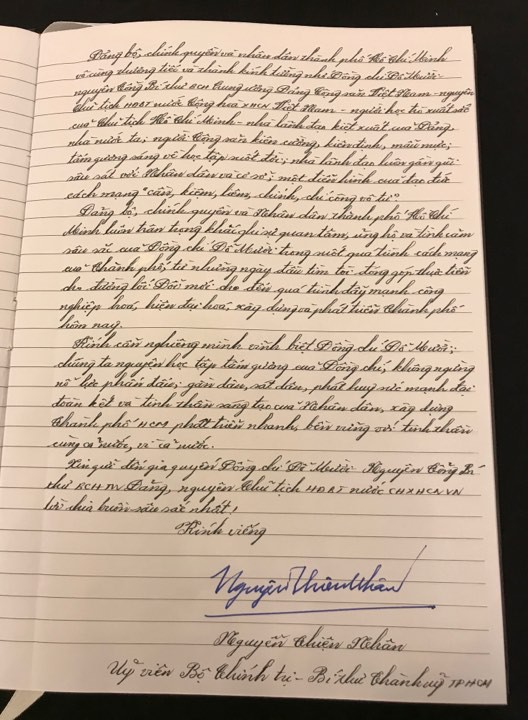 Đảng bộ, chính quyền và nhân dân thành phố Hồ Chí Minh
vô cùng thương tiếc và thành kính tưởng nhớ Đồng chí Đỗ Mười -
nguyên Tổng Bí thư BCH Trung ương Đảng Cộng sản Việt Nam - nguyên
Chủ tịch HĐBT nước Cộng hòa XHCN Việt Nam - người học trò xuất sắc
của Chủ tịch Hồ Chí Minh - nhà lãnh đạo kiệt xuất của Đảng,
nhà nước ta; người Cộng sản kiên cường, kiên định, mẫu mực;
tấm gương sáng về học tập suốt đời; nhà lãnh đạo luôn gần gũi
sâu sát với Nhân dân và cơ sở; một điển hình của đạo đức
cách mạng "cần, kiệm, liêm, chính, chí công vô tư".
Đảng bộ, chính quyền và Nhân dân thành phố Hồ Chí
Minh luôn trân trọng khắc ghi sự quan tâm, ủng hộ và tình cảm
sâu sắc của Đồng chí Đỗ Mười trong suốt quá trình cách mạng
của Thành phố, từ những ngày đầu tìm tòi đóng góp thực tiễn
cho đường lối Đổi mới cho đến quá trình đẩy mạnh công
nghiệp hoá, hiện đại hoá, xây dựng và phát triển Thành phố
hôm nay.
Kính cẩn nghiêng mình vĩnh biệt Đồng chí Đỗ Mười;
chúng ta nguyện học tập tấm gương của Đồng chí, không ngừng
nỗ lực phấn đấu; gần dân, sát dân, phát huy sức mạnh đại
đoàn kết và tinh thần sáng tạo của Nhân dân, xây dựng
Thành phố HCM phát triển nhanh, bền vững với tinh thần
cùng cả nước, vì cả nước.
Xin gửi đến gia quyến Đồng chí Đỗ Mười - Nguyên Tổng Bí
thư BCH TW Đảng, nguyên Chủ tịch HĐBT nước CHXHCN VN
lời chia buồn sâu sắc nhất!
Kính viếng
Nguyễn Thiện Nhân
Nguyễn Thiện Nhân
Uỷ viên Bộ Chính trị - Bí thư Thành uỷ TP HCM